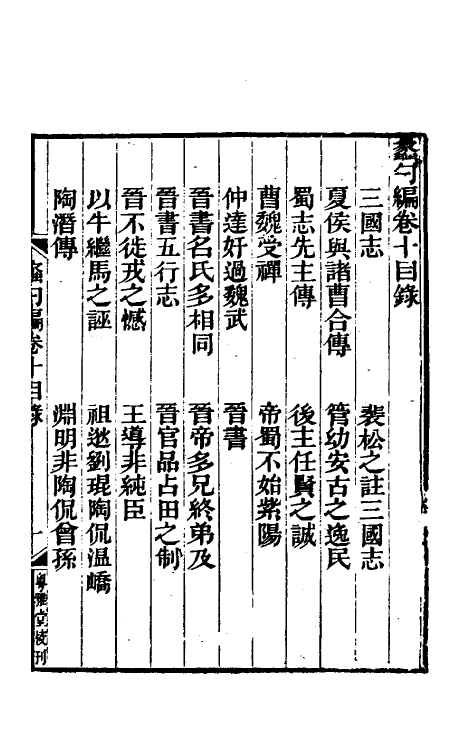 蠡勺編卷十目錄
三國志　裴松之註三國志
夏侯與諸曹合傳　管幼安古之逸民
蜀志先主傳　後主任賢之誠
曹魏受禪　帝蜀不始紫陽
仲達奸過魏武　晉書
晉書名氏多相同　晉帝多兄終弟及
晉書五行志　晉官品占田之制
晉不徙戎之憾　王導非純臣
以牛繼馬之誣　祖逖劉琨陶侃溫嶠
陶潛傳　淵明非陶侃曾孫
蠡勺編卷十目錄　一　粵雅堂校刊